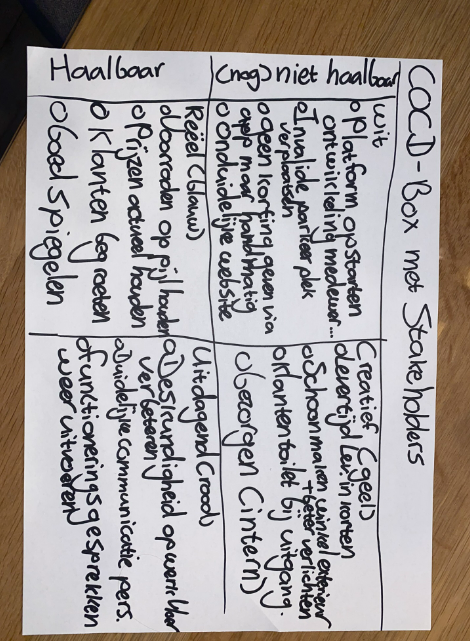 COCD-Box met Stakeholders
(nog) niet haalbaar
wit
o Platform opstarten
ontwikkeling medewer...
o Invalide parkeer plek
verplaatsen
o geen korting geven via
app maar handmatig
o Onduidelijke website
Creatief (geel)
o levertijd lev. in korten
o Schoonmaken winkel exterieur
+ beter verlichten
o klantentoilet bij uitgang.
o bezorgen (intern)
Haalbaar
Reëel (blauw)
o Voorraden op pijl houden
o Prijzen actueel houden
o Klanten begroeten
o Goed spiegelen
Uitdagend (rood)
o Deskundigheid op werkvloer
verbeteren
o Duidelijke communicatie pers.
o functioneringsgesprekken
weer uitvoeren